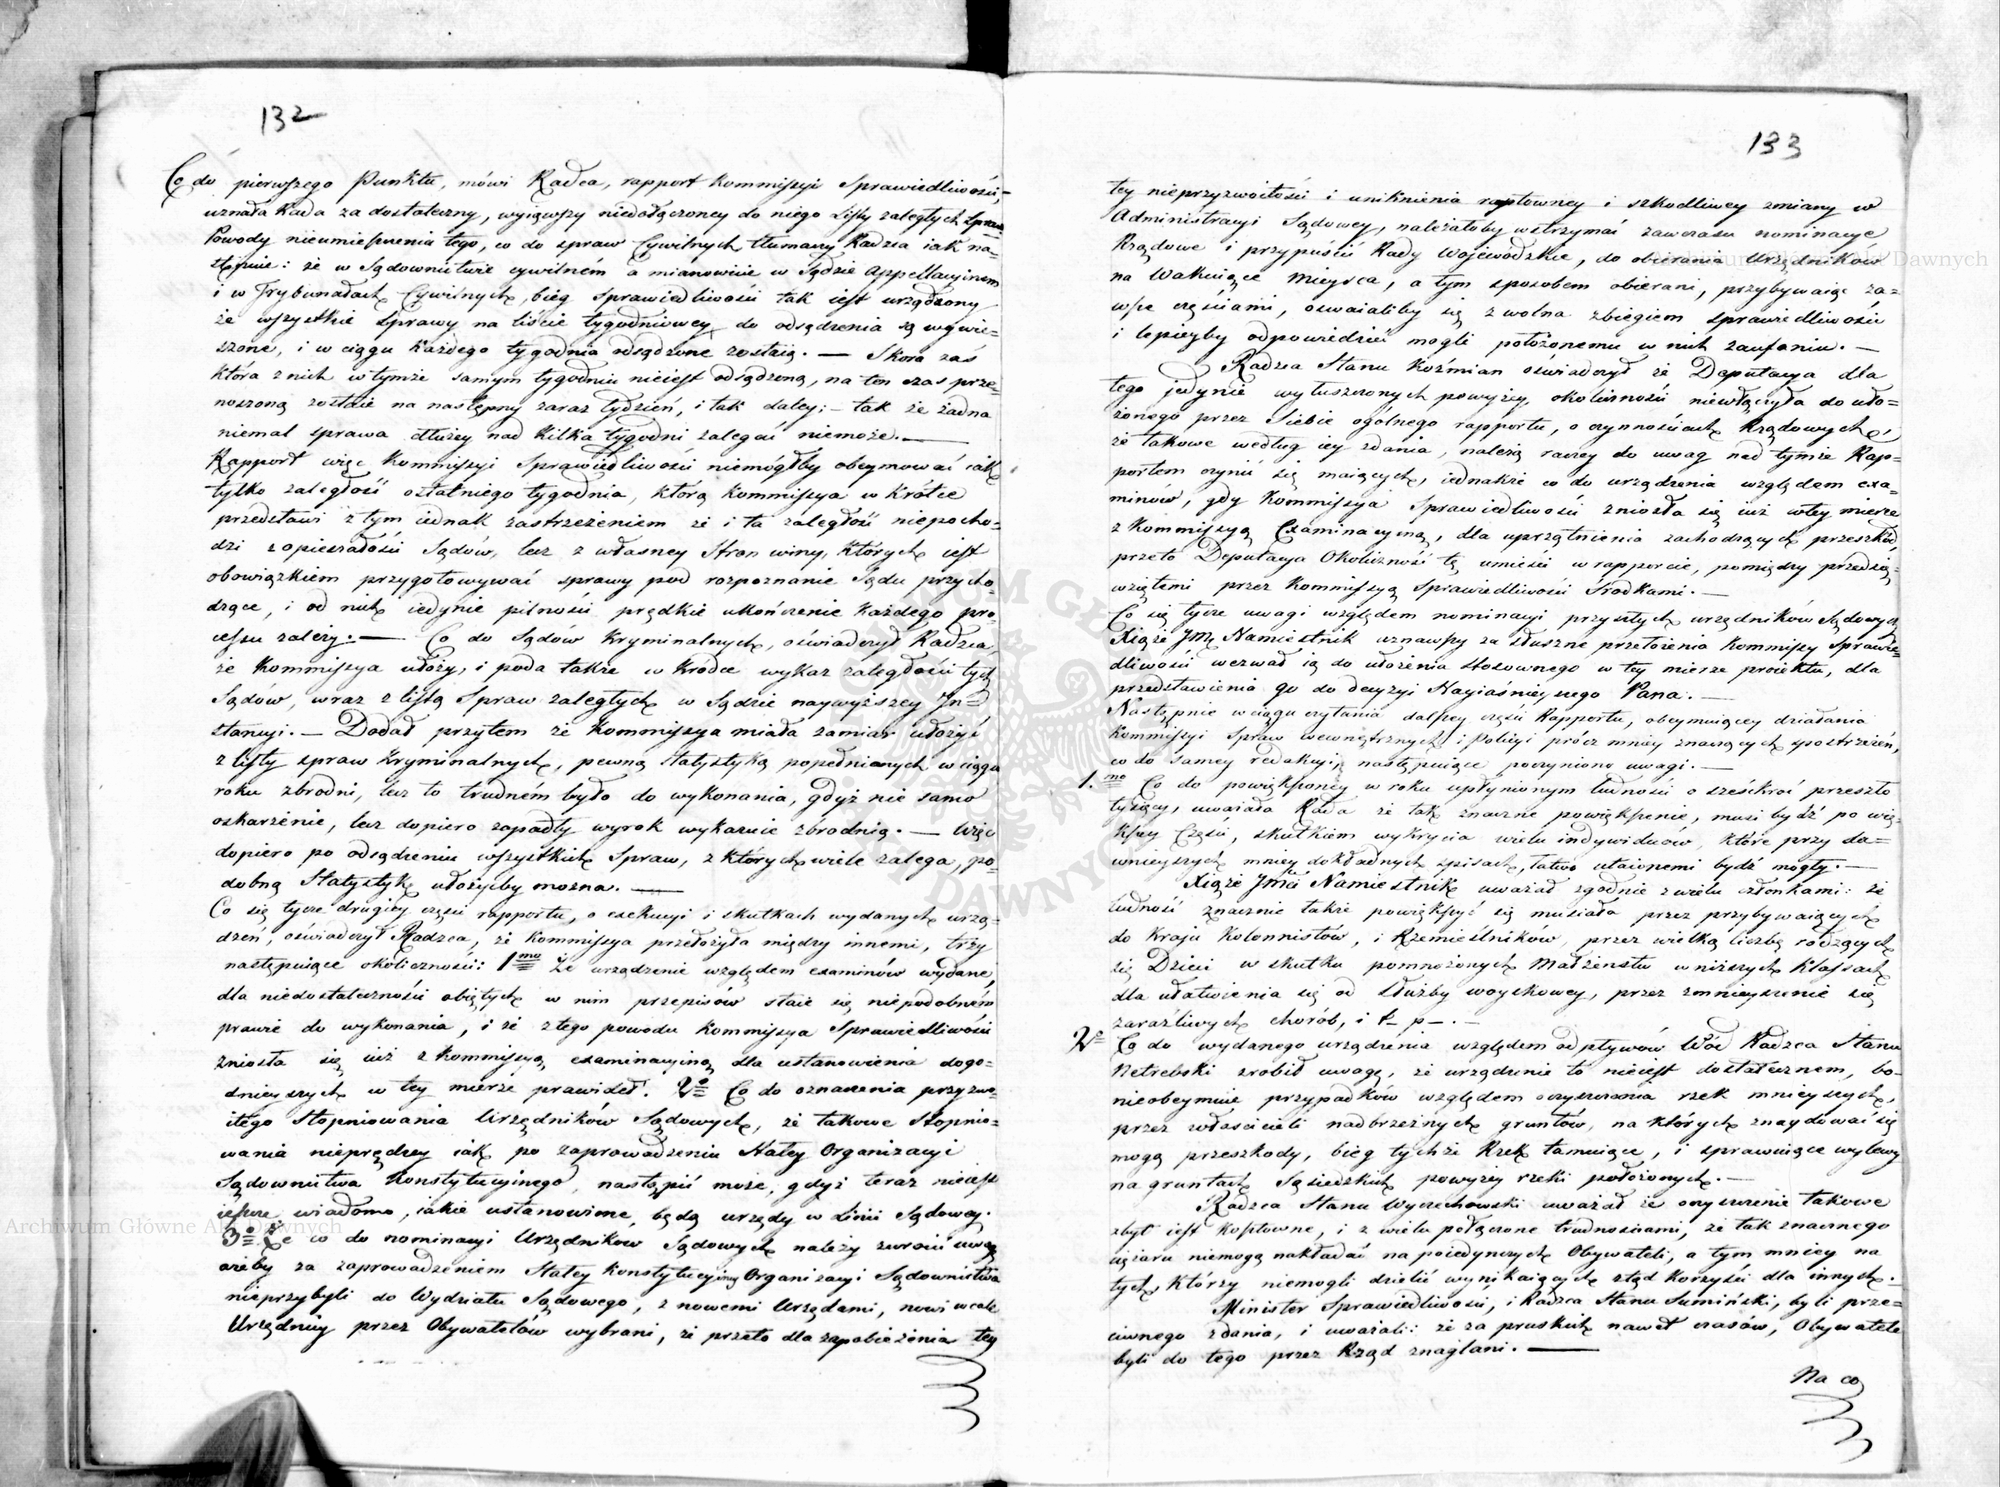 132
Co do pierwszego Punktu, mówi Radca, rapport Kommissyi Sprawiedliwości,
uznała Rada za dostateczny, wyiąwszy niedołączoney do niego Listy zaległych Spraw.
Powody nieumieszczenia tego, co do spraw Cywilnych tłumaczy Radzca iak na-
stępuie: że w Sądownictwie cywilném a mianowicie w Sądzie Appellacyinem
i w Trybunałach Cywilnych, bieg sprawiedliwości tak iest urządzony
że wszystkie sprawy na liście tygodniowey do odsądzenia są wywie-
szone, i w ciągu każdego tygodnia odsądzone zostaią. — Skoro zaś
która z nich w tymże samym tygodniu nieiest odsądzoną, na ten czas prze-
noszoną zostaie na następny zaraz tydzień, i tak daley; - tak że żadna
niemal sprawa dłużey nad kilka tygodni zalegać niemoże. —
Rapport więc Kommissyi Sprawiedliwości niemógłby obeymować iak
tylko zaległość ostatniego tygodnia, którą Kommissya w krótce
przedstawi z tym iednak zastrzeżeniem że i ta zaległość niepocho-
dzi z opieszałości Sądów, lecz z własney Stron winy, których iest
obowiązkiem przygotowywać sprawy pod rozpoznanie Sądu przycho-
dzące, i od nich iedynie pilności prędkie ukończenie każdego pro-
cessu zależy. — Co do Sądów Kryminalnych, oświadczył Radzca,
że Kommissya ułoży, i poda także w krótce wykaz zaległości tych
Sądów, wraz z listą Spraw zaległych w Sądzie naywyższey In-
stancyi. — Dodał przytem że Kommissya miała zamiar ułożyć
z listy spraw Kryminalnych, pewną statystykę popełnionych w ciągu
roku zbrodni, lecz to trudném było do wykonania, gdyż nie samo
oskarżenie, lecz dopiero zapadły wyrok wykazuie zbrodnią. — Więc
dopiero po odsądzeniu wszystkich Spraw, z których wiele zalega, po-
dobną Statystykę ułożyćby można. —
Co się tycze drugiey części rapportu, o exekucyi i skutkach wydanych urzą-
dzeń, oświadczył Radzca, że Kommissya przełożyła między innemi, trzy
następuiące okoliczności: 1mo Że urządzenie względem examinów wydane,
dla niedostateczności obiętych w nim przepisów staie się niepodobnem
prawie do wykonania, i że z tego powodu Kommissya Sprawiedliwości
zniosła się iuż z Kommissyą examinacyiną dla ustanowienia dogo-
dnieyszych w tey mierze prawideł. 2o Co do oznaczenia przyzwo-
itego Stopniowania Urzędników Sądowych, że takowe Stopnio-
wania nieprędzey iak po zaprowadzeniu Stałey Organizacyi
Sądownictwa Konstytucyinego, nastąpić może, gdyż teraz nieiest
ieszcze wiadomo, iakie ustanowione będą urzędy w Linii Sądowey.
3o Że co do nominacyi Urzędników Sądowych należy zwrócić uwagę
ażeby za zaprowadzeniem Stałey Konstytucyiney Organizacyi Sądownictwa
nieprzybyli do Wydziału Sądowego, z nowemi Urzędami, nowi wcale
Urzędnicy przez Obywatelów wybrani, że przeto dla zapobieżenia tey
133
tey nieprzyzwoitości i uniknienia raptowney i szkodliwey zmiany w
Administracyi Sądowey, należałoby wstrzymać zawczasu nominacye
Rządowe i przypuścić Rady Wojewódzkie, do obierania Urzędników
na Wakuiące mieysca, a tym sposobem obierani, przybywaiąc za-
wsze częściami, oswaialiby się z wolna z biegiem sprawiedliwości
i lepieyby odpowiedzieć mogli położonemu w nich zaufaniu. —
Radzca Stanu Koźmian oświadczył że Deputacya dla
tego jedynie wytuszczonych powyżey okoliczności niewłączyła do uło-
żonego przez Siebie ogólnego rapportu, o czynnościach Rządowych,
że takowe według iey zdania, należą raczey do uwag nad tymże Rap-
portem czynić się maiących, iednakże co do urządzenia względem exa-
minów, gdy Kommissya Sprawiedliwości zniosła się iuż w tey mierze
z Kommissyą Examinacyiną, dla uprzątnienia zachodzących przeszkód,
przeto Deputacya Okoliczność tę umieści w rapporcie, pomiędzy przedsię-
wziętemi przez Kommissyą Sprawiedliwości Środkami. —
Co się tycze uwagi względem nominacyi przyszłych urzędników Sądowych
Xiąże Jmć Namiestnik uznawszy za słuszne przełożenia Kommissyi Sprawie-
dliwości wezwał ią do ułożenia stosownego w tey mierze proiektu, dla
przedstawienia go do decyzyi Nayiaśnieyszego Pana. —
Następnie w ciągu czytania dalszey części Rapportu, obeymuiącey działania
Kommissyi Spraw wewnętrznych i Policyi prócz mniey znaczących spostrzeżeń,
co do samey redakcyi, następuiące poczyniono uwagi. —
1.mo Co do powiększoney w roku upłynionym ludności o sześćkroć przeszło
tysięcy, uważała Rada że tak znaczne powiększenie, musi bydź po wię-
kszey Części, skutkiem wykrycia wielu indywiduów, które przy da-
wnieyszych mniey dokładnych spisach, łatwo utaionemi bydź mogły. —
Xiąże Jmć Namiestnik uważał zgodnie z wielu członkami: że
ludność znacznie także powiększyć się musiała przez przybywaiących
do kraju Kolonnistów, i Rzemieślników, przez wielką liczbę rodzących
się Dzieci w skutku pomnożonych Małżeństw w niższych Klassach
dla ułatwienia się od Służby woyskowey, przez zmnieyszenie się
zaraźliwych chorób, i t- p-. -
2o Co do wydanego urządzenia względem odpływów Wód Radzca Stanu
Netrebski zrobił uwagę, że urządzenie to nieiest dostatecznem, bo-
nieobeymuie przypadków względem oczyszczania rzek mnieyszych,
przez właścicieli nadbrzeżnych gruntów, na których znaydować się
mogą przeszkody, bieg tychże Rzek tamuiące, i sprawuiące wylewy
na gruntach Sąsiedzkich powyżey rzeki położonych. —
Radzca Stanu Wyczechowski uważał że oczyszczenie takowe
zbyt iest kosztowne, i z wielu połączone trudnościami, że tak znacznego
ciężaru niemogą nakładać na poiedynczych Obywateli, a tym mniey na
tych, Którzy niemogli dzielić wynikaiących ztąd korzyści dla innych. -
Minister Sprawiedliwości, i Radzca Stanu Sumiński, byli prze-
ciwnego zdania, i uważali: że za pruskich nawet czasów, Obywatele
byli do tego przez Rząd znaglani. —
Na co